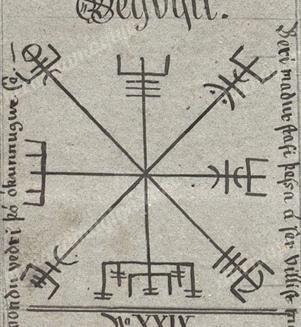 Vegvýsir.
Beri maður stafi þessa á sér villist m
vondu veðri þó ókunnugur sé,—
No XXIX